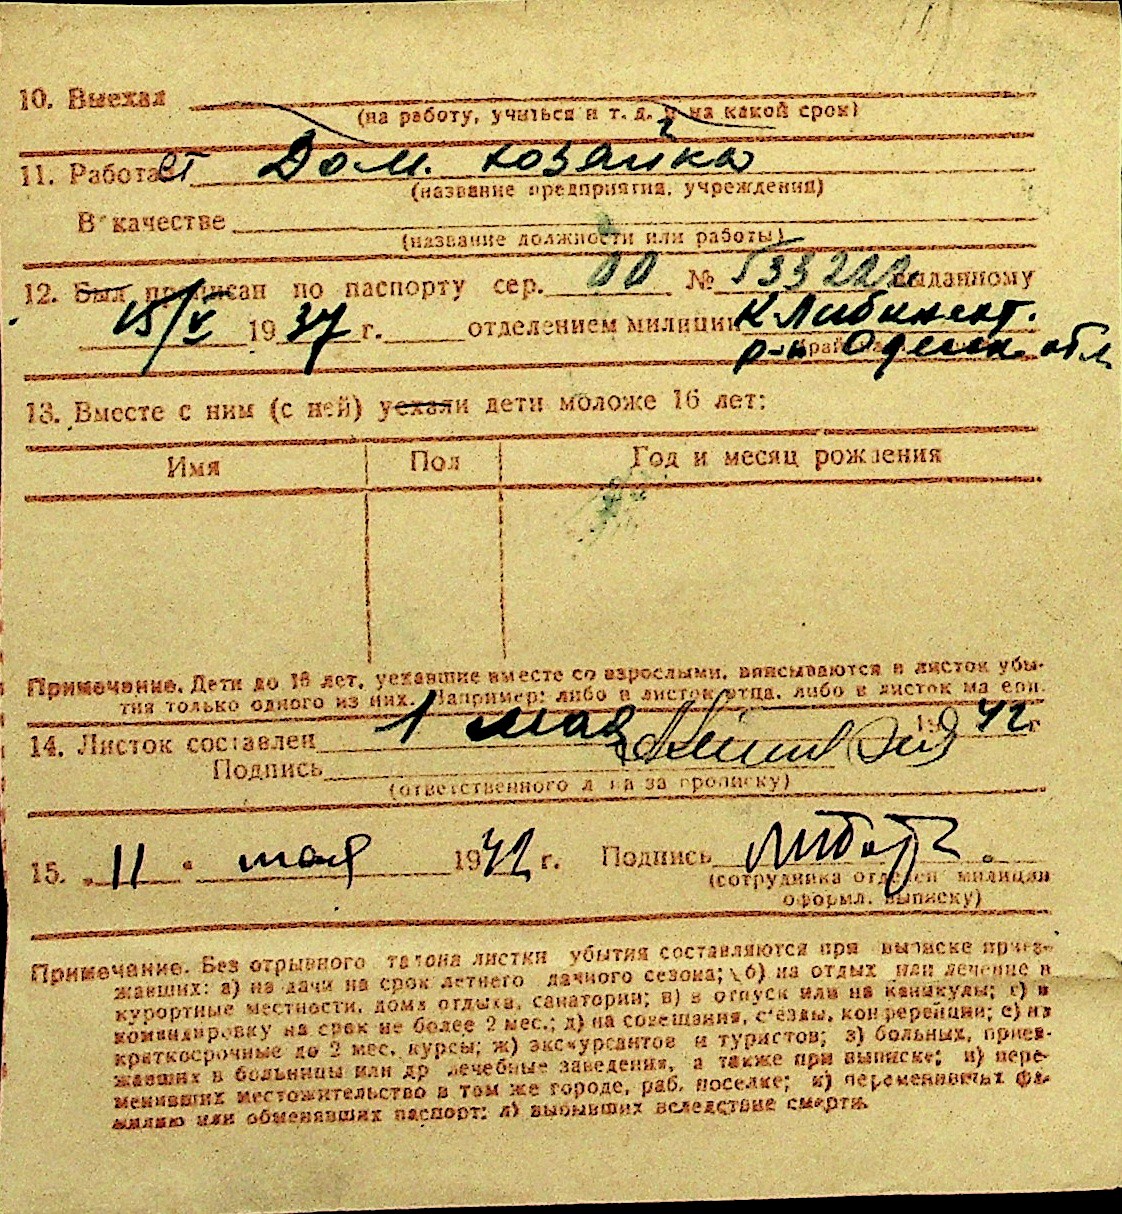 10. Выехал
(на работу, учиться и т. д. и на какой срок)
11. Работает Дом. хозайка
(название предприятия, учреждения)
В качестве
(название должности или работы)
12. Был прописан по паспорту сер. № 533222 выданному
15/V 1937 г. отделением милиции К. Либкнехт.
р-н Одесск. обл.
13. Вместе с ним (с ней) уехали дети моложе 16 лет:
Имя Пол Год и месяц рождения
Примечание. Дети до 16 лет, уехавшие вместе со взрослыми, вписываются в листок убы-
тия только одного из них. Например: либо в листок отца, либо в листок матери.
14. Листок составлен 1 мая 1942 г
Подпись
(ответственного лица за прописку)
15. „11 " мая 1942 г. Подпись
(сотрудника отделен милиции
оформл. выписку)
Примечание. Без отрывного талона листки убытия составляются при выписке приез-
жавших: а) на дачи на срок летнего дачного сезона; б) на отдых или лечение в
курортные местности, дома отдыха, санатории; в) в отпуск или на каникулы; г) в
командировку на срок не более 2 мес.; д) на совещания, с'езды, конференции; е) на
краткосрочные до 2 мес. курсы; ж) экскурсантов и туристов; з) больных, приез-
жавших в больницы или др лечебные заведения, а также при выписке; и) пере-
менивших местожительство в том же городе, раб. поселке; к) переменивших фа-
милию или обменявших паспорт; л) выбывших вследствие смерти.